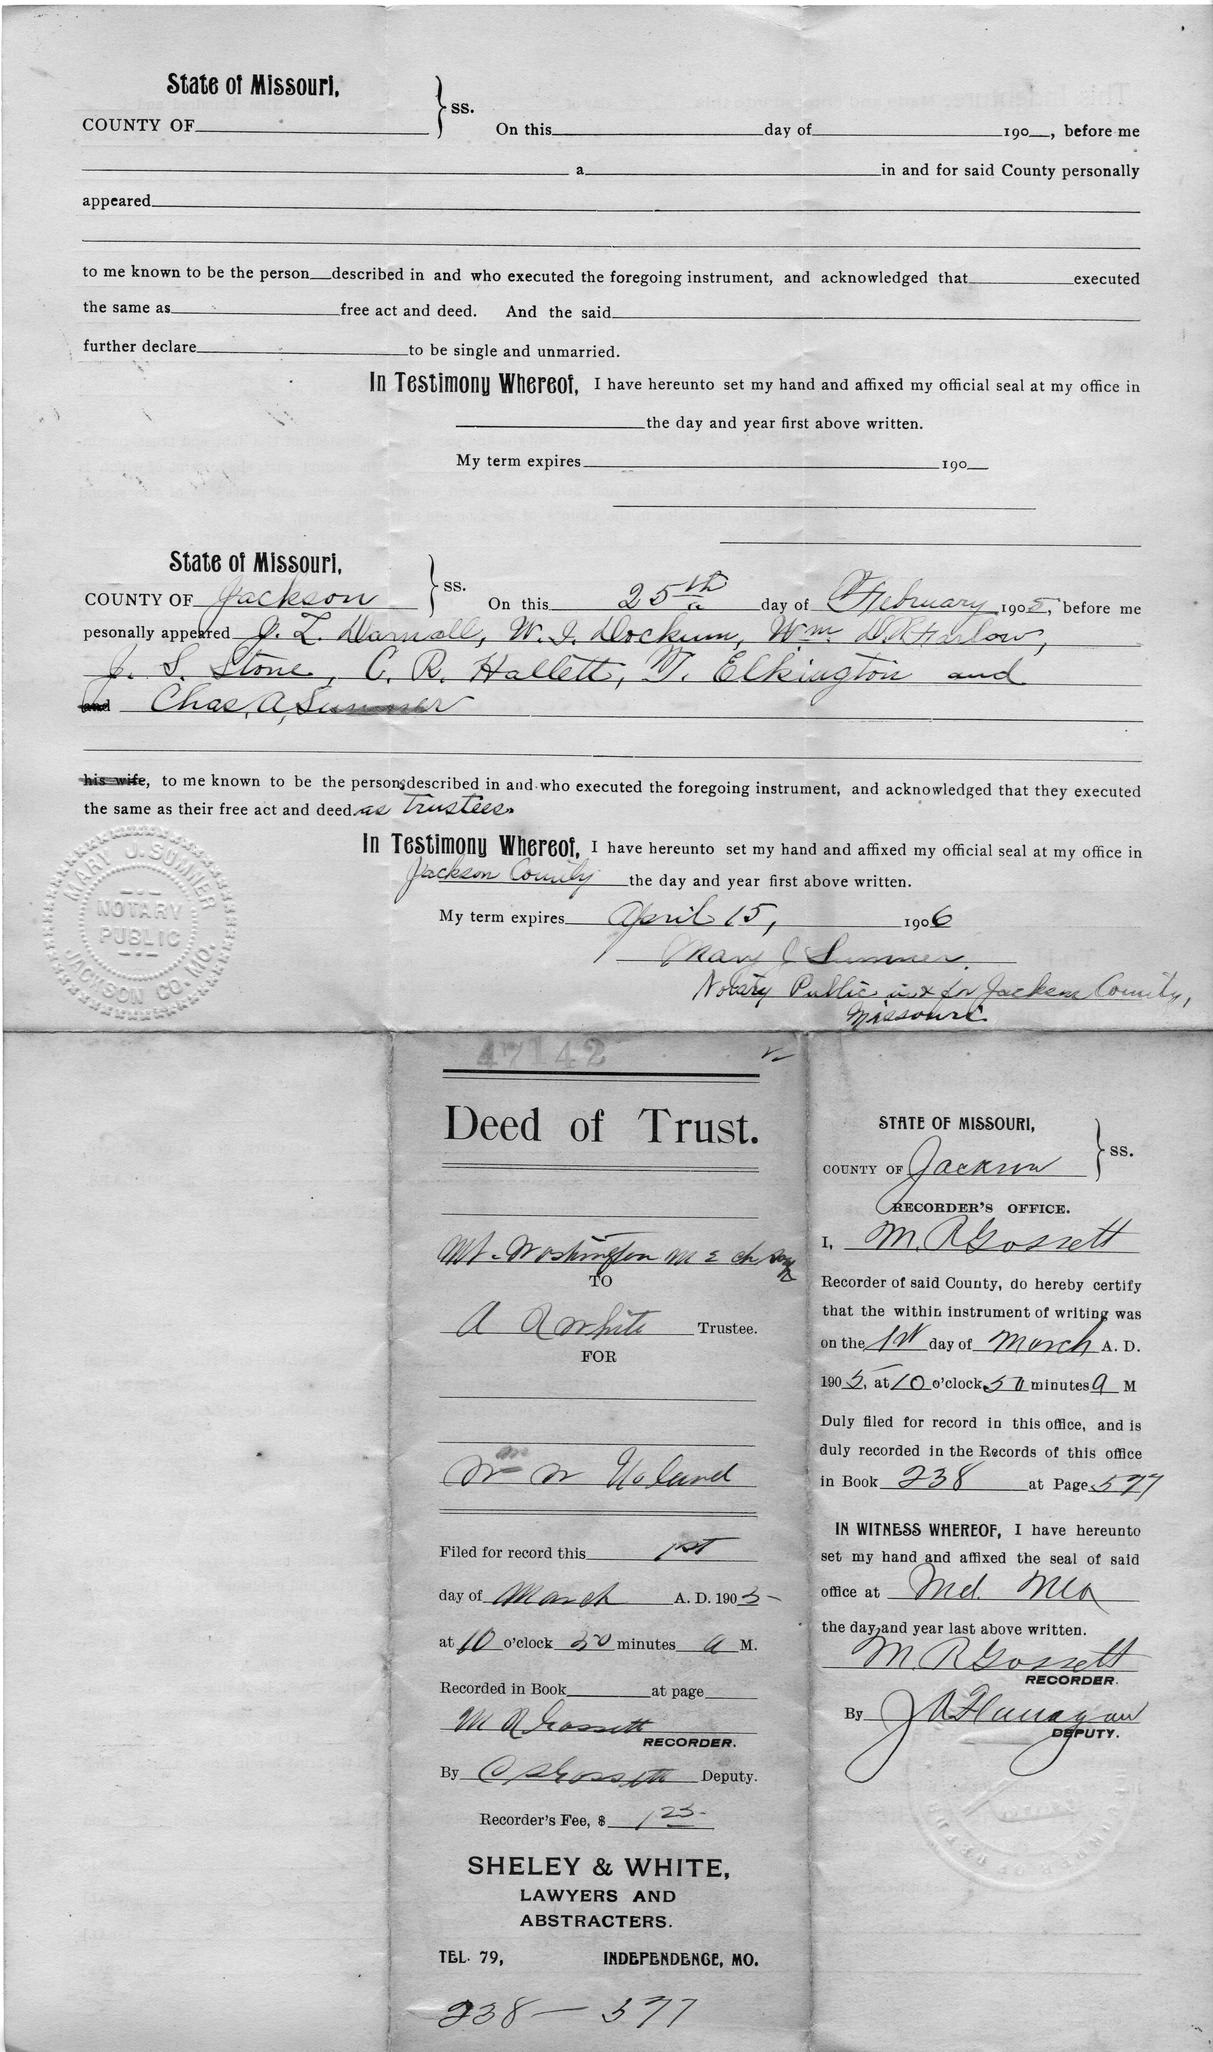 State of Missouri,
COUNTY OF
ss.
On this day of 190 , before me
a in and for said County personally
appeared
to me known to be the person described in and who executed the foregoing instrument, and acknowledged that executed
the same as free act and deed. And the said
further declare to be single and unmarried.
In Testimony Whereof, I have hereunto set my hand and affixed my official seal at my office in
the day and year first above written.
My term expires 190
State of Missouri,
COUNTY OF Jackson
ss.
On this 25th day of February 1905, before me
pesonally appeared J. L. Darnall, W. I. Dockum, Wm D.R. Harlow,
J. S. Stone, C. R. Hallett, T. Elkington and
and Chas. A. Sumner
his wife, to me known to be the persons described in and who executed the foregoing instrument, and acknowledged that they executed
the same as their free act and deed as trustees.
In Testimony Whereof, I have hereunto set my hand and affixed my official seal at my office in
Jackson County the day and year first above written.
My term expires April 15, 1906
Mary J Sumner.
Notary Public in & for Jackson County,
Missouri
MARY J. SUMNER
NOTARY
PUBLIC
JACKSON CO. MO.
47142
Deed of Trust.
Mt. Washington M E ch
TO
A R White Trustee.
FOR
Wm W Noland
Filed for record this 1st
day of March A. D. 1905
at 10 o'clock 50 minutes a M.
Recorded in Book at page
M R Gossett
RECORDER.
By C S Gossett Deputy.
Recorder's Fee, $ 1 25
SHELEY & WHITE,
LAWYERS AND
ABSTRACTERS.
TEL. 79, INDEPENDENCE, MO.
238 — 577
STATE OF MISSOURI,
COUNTY OF Jackson
ss.
RECORDER'S OFFICE.
I, M. R Gossett
Recorder of said County, do hereby certify
that the within instrument of writing was
on the 1st day of March A. D.
1905, at 10 o'clock 50 minutes a M
Duly filed for record in this office, and is
duly recorded in the Records of this office
in Book 238 at Page 577
IN WITNESS WHEREOF, I have hereunto
set my hand and affixed the seal of said
office at
the day and year last above written.
M. R Gossett
RECORDER.
By J A Flanagan
DEPUTY.